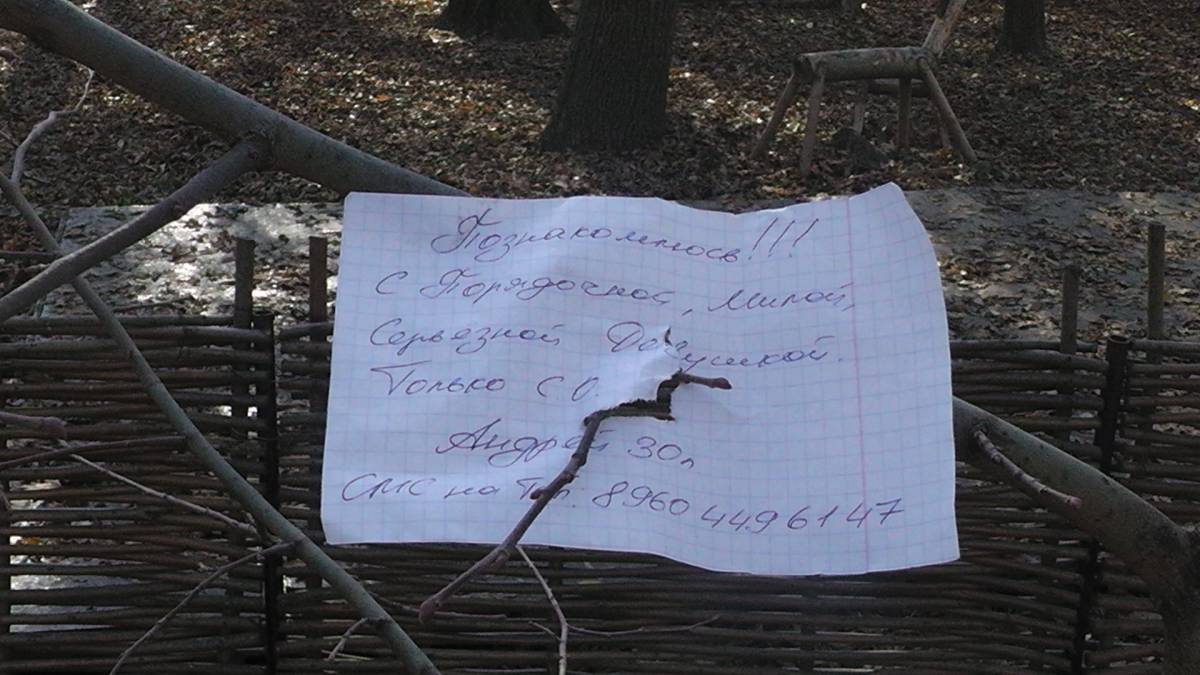 Познакомлюсь!!!
С Порядочной, Милой,
Серьезной Девушкой.
Только С О.
Андрей 30л
СМС на Тел. 8960 449 61 47